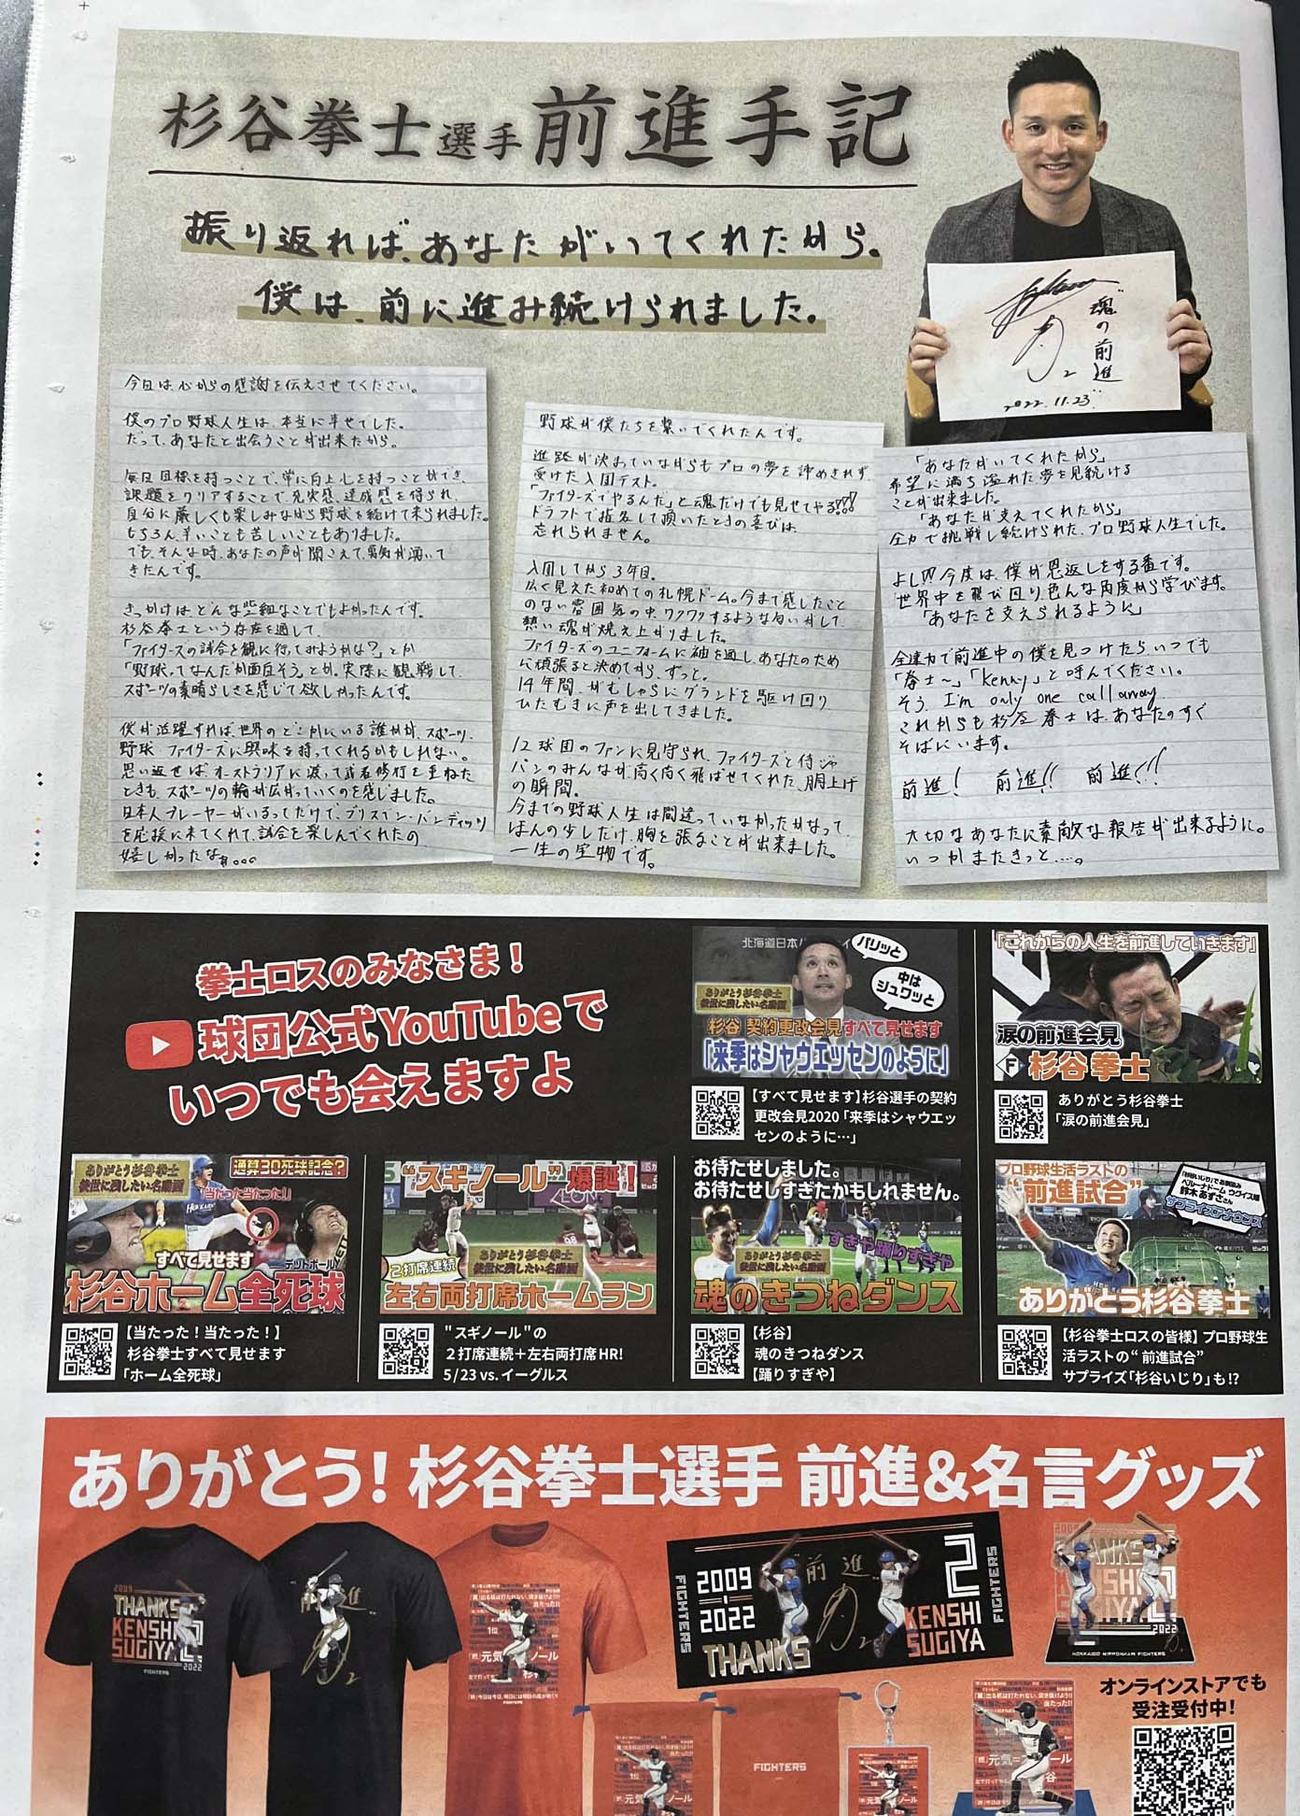 杉谷拳士選手 前進手記
振り返れば、あなたがいてくれたから。
僕は、前に進み続けられました。
"魂の前進"
2
2022.11.23
今日は、心からの感謝を伝えさせてください。
僕のプロ野球人生は、本当に幸せでした。
だって、あなたと出会うことが出来たから。
毎日目標を持つことで、常に向上心を持つことができ、
課題をクリアすることで充実感、達成感を得られ、
自分に厳しくも楽しみながら野球を続けて来られました。
もちろん、辛いことも苦しいこともありました。
でも、そんな時、あなたの声が聞こえて、勇気が湧いて
きたんです。
きっかけは、どんな些細なことでもよかったんです。
杉谷拳士という存在を通して、
「ファイターズの試合を観に行ってみようかな?」とか
「野球ってなんだか面白そう。」とか、実際に観戦して、
スポーツの素晴らしさを感じて欲しかったんです。
僕が活躍すれば、世界のどこかにいる誰かが、スポーツ、
野球、ファイターズに興味を持ってくれるかもしれない。
思い返せば、オーストラリアに渡って武者修行を重ねた
ときも、スポーツの輪が広がっていくのを感じました。
日本人プレーヤーがいるってだけで、ブリスベン・バンディッツ
を応援に来てくれて、試合を楽しんでくれたの
嬉しかったなぁ。。。
野球が僕たちを繋いでくれたんです。
進路が決まっていながらもプロの夢を諦めきれず、
受けた入団テスト。
「ファイターズでやるんだ」と魂だけでも見せてやる!!!
ドラフトで指名して頂いたときの喜びは、
忘れられません。
入団してから3年目。
広く見えた初めての札幌ドーム。今まで感じたこと
のない雰囲気の中、ワクワクするような匂いがして、
熱い魂が燃え上がりました。
ファイターズのユニフォームに袖を通し、あなたのため
に頑張ると決めてから、ずっと。
14年間、がむしゃらにグランドを駆け回り、
ひたむきに声を出してきました。
12球団のファンに見守られ、ファイターズと侍ジャ
パンのみんなが高く高く飛ばせてくれた、胴上げ
の瞬間。
今までの野球人生は間違っていなかったかなって
ほんの少しだけ、胸を張ることが出来ました。
一生の宝物です。
「あなたがいてくれたから」
希望に満ち溢れた夢を見続ける
ことが出来ました。
「あなたが支えてくれたから」
全力で挑戦し続けられた、プロ野球人生でした。
よし!!!今度は、僕が恩返しをする番です。
世界中を飛び回り色んな角度から学びます。
「あなたを支えられるように」
全速力で前進中の僕を見つけたら、いつでも
「拳士〜」「kenny」と呼んでください。
そう、I'm only one call away.
これからも杉谷拳士は、あなたのすぐ
そばにいます。
前進! 前進!! 前進!!!
大切なあなたに素敵な報告が出来るように。
いつかまたきっと…。
拳士ロスのみなさま!
球団公式YouTubeで
いつでも会えますよ
パリッと
中はジュワッと
ありがとう杉谷拳士
後世に残したい名動画
杉谷 契約更改会見すべて見せます
「来季はシャウエッセンのように」
【すべて見せます】杉谷選手の契約
更改会見2020「来季はシャウエッ
センのように…」
「これからの人生を前進していきます」
涙の前進会見
F 杉谷拳士
ありがとう杉谷拳士
「涙の前進会見」
ありがとう杉谷拳士
後世に残したい名動画
通算30死球記念?
「当たった当たった!」
すべて見せます
デッドボール
杉谷ホーム全死球
【当たった!当たった!】
杉谷拳士すべて見せます
「ホーム全死球」
"スギノール"爆誕!
2打席連続
ありがとう杉谷拳士
後世に残したい名動画
左右両打席ホームラン
"スギノール"の
2打席連続+左右両打席HR!
5/23 vs. イーグルス
お待たせしました。
お待たせしすぎたかもしれません。
すぎや踊りすぎや
ありがとう杉谷拳士
後世に残したい名動画
魂のきつねダンス
【杉谷】
魂のきつねダンス
【踊りすぎや】
プロ野球生活ラストの
"前進試合"
サプライズアナウンス
ありがとう杉谷拳士
【杉谷拳士ロスの皆様】プロ野球生
活ラストの"前進試合"
サプライズ「杉谷いじり」も!?
ありがとう! 杉谷拳士選手 前進&名言グッズ
2009
THANKS
KENSHI
SUGIYA
2022
FIGHTERS
前進
2
FIGHTERS
FIGHTERS
2009
2022
THANKS
前進
2
KENSHI
SUGIYA
FIGHTERS
2022
HOKKAIDO NIPPONHAM FIGHTERS
FIGHTERS
オンラインストアでも
受注受付中!